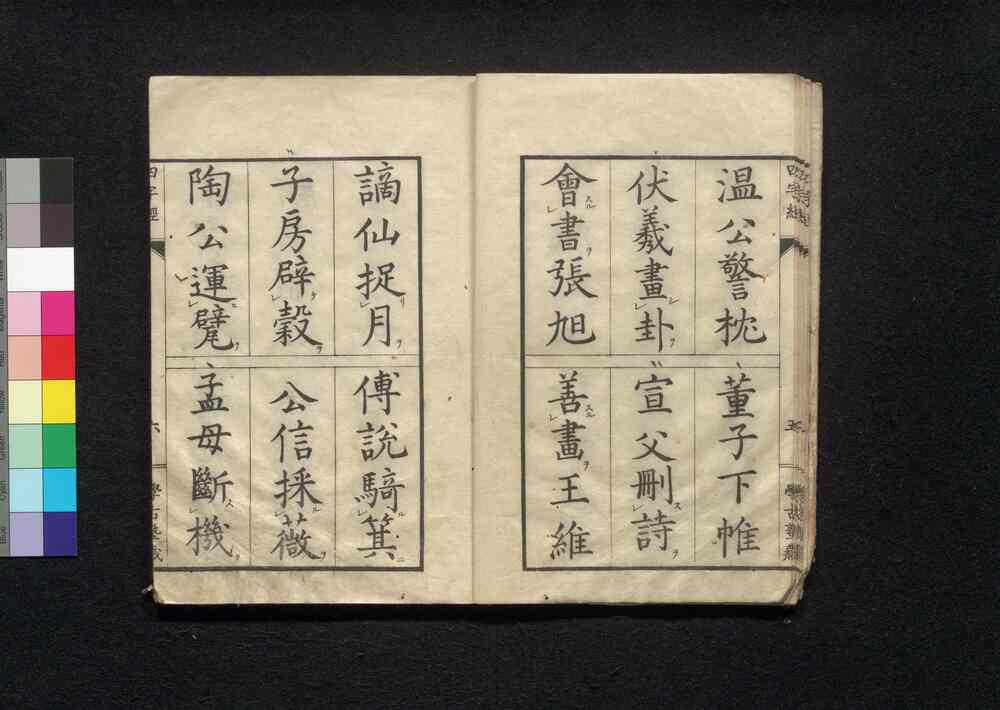 温公警枕　董子下帷
伏羲畫卦　宣父刪詩
會書張旭　善畫王維
謫仙捉月　傅說騎箕
子房辟穀　公信採薇
陶公運甓　孟母斷機
四字經
六